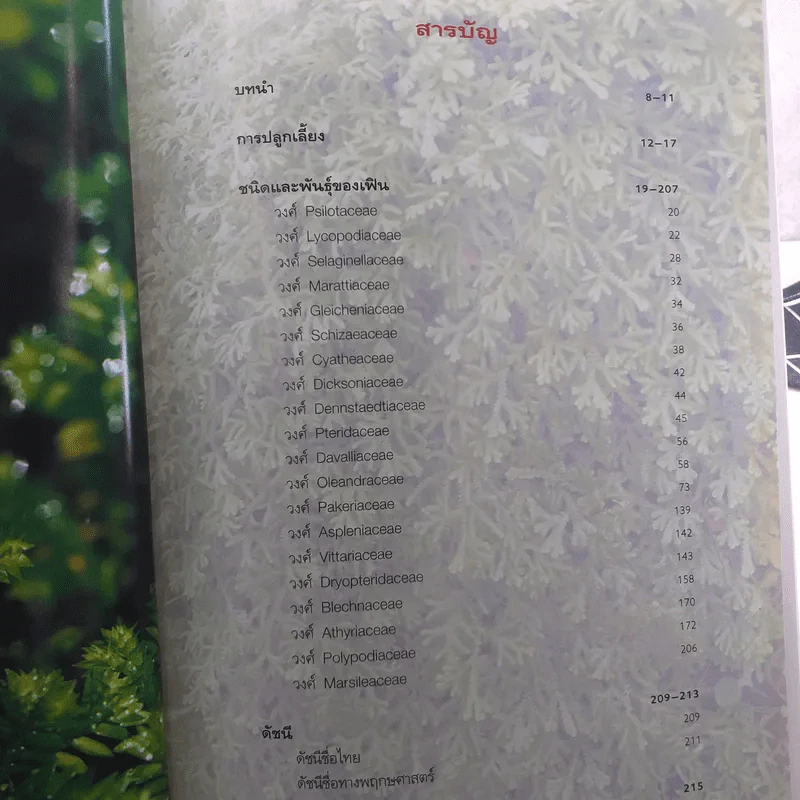 สารบัญ
บทนำ 8–11
การปลูกเลี้ยง 12–17
ชนิดและพันธุ์ของเฟิน 19–207
วงศ์ Psilotaceae 20
วงศ์ Lycopodiaceae 22
วงศ์ Selaginellaceae 28
วงศ์ Marattiaceae 32
วงศ์ Gleicheniaceae 34
วงศ์ Schizaeaceae 36
วงศ์ Cyatheaceae 38
วงศ์ Dicksoniaceae 42
วงศ์ Dennstaedtiaceae 44
วงศ์ Pteridaceae 45
วงศ์ Davalliaceae 56
วงศ์ Oleandraceae 58
วงศ์ Pakeriaceae 73
วงศ์ Aspleniaceae 139
วงศ์ Vittariaceae 142
วงศ์ Dryopteridaceae 143
วงศ์ Blechnaceae 158
วงศ์ Athyriaceae 170
วงศ์ Polypodiaceae 172
วงศ์ Marsileaceae 206
ดัชนี 209–213
ดัชนีชื่อไทย 209
ดัชนีชื่อทางพฤกษศาสตร์ 211
215